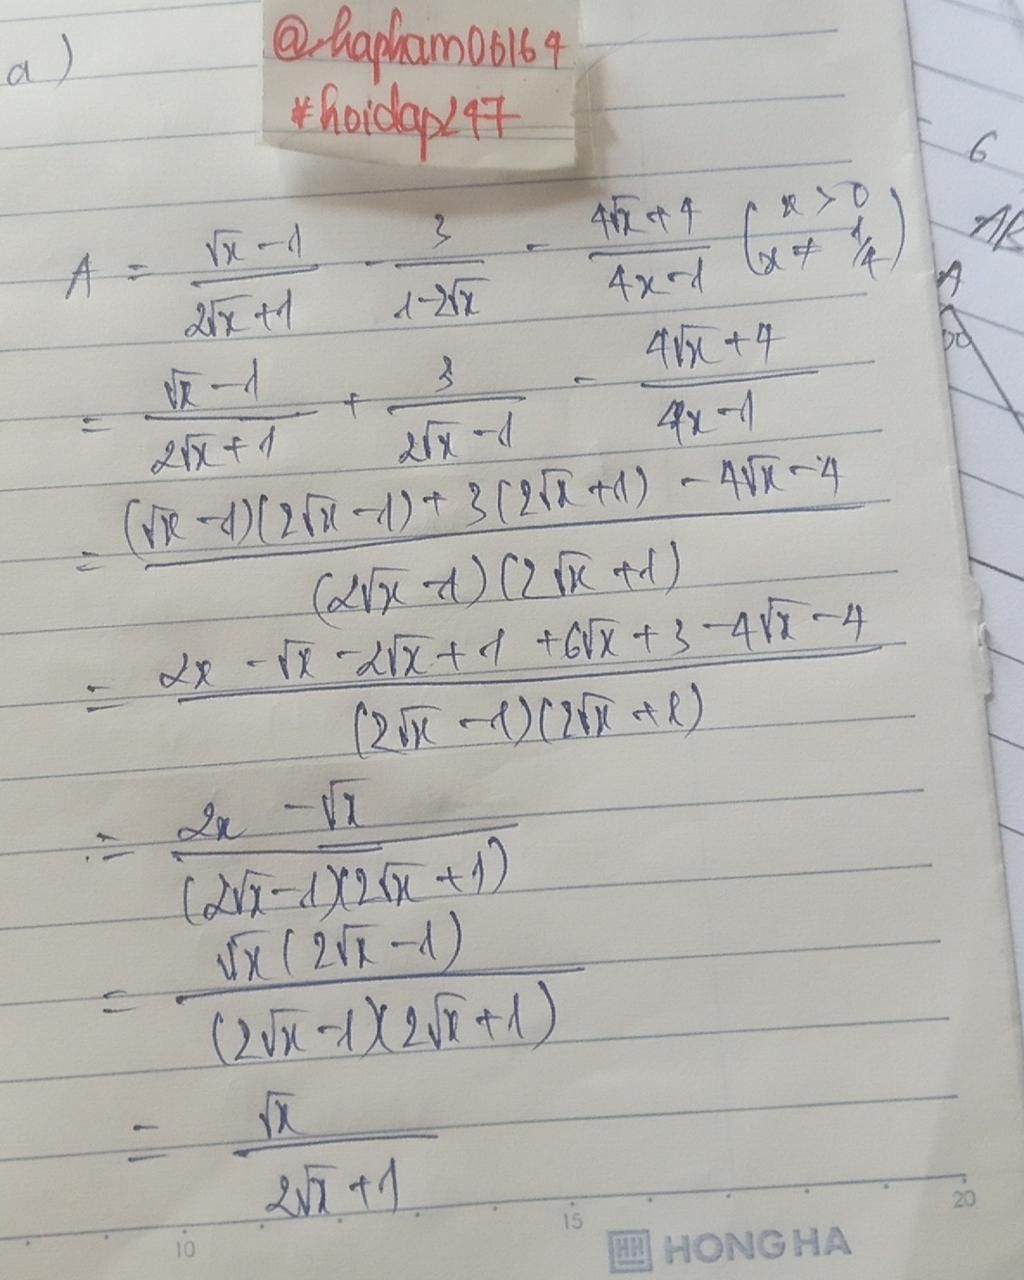 a)
@hapham06164
#hoidap247
A = (√x - 1)/(2√x + 1) - 3/(1 - 2√x) - (4√x + 4)/(4x - 1) (x > 0 x ≠ 1/4)
= (√x - 1)/(2√x + 1) + 3/(2√x - 1) - (4√x + 4)/(4x - 1)
= ((√x - 1)(2√x - 1) + 3(2√x + 1) - 4√x - 4)/((2√x - 1)(2√x + 1))
= (2x - √x - 2√x + 1 + 6√x + 3 - 4√x - 4)/((2√x - 1)(2√x + 1))
= (2x - √x)/((2√x - 1)(2√x + 1))
= (√x(2√x - 1))/((2√x - 1)(2√x + 1))
= √x/(2√x + 1)
10 15 20
HH HONG HA
6
A